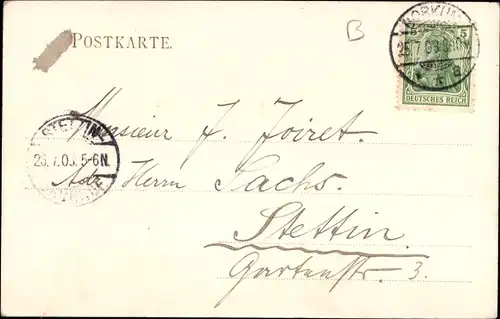 POSTKARTE.
B
BORKUM
5
25.7.03
* a
DEUTSCHES REICH
STETTIN
26.7.03. 5-6N.
Monsieur J. Joiret.
Adr Herrn Sachs.
Stettin.
Gartenstr. 3.